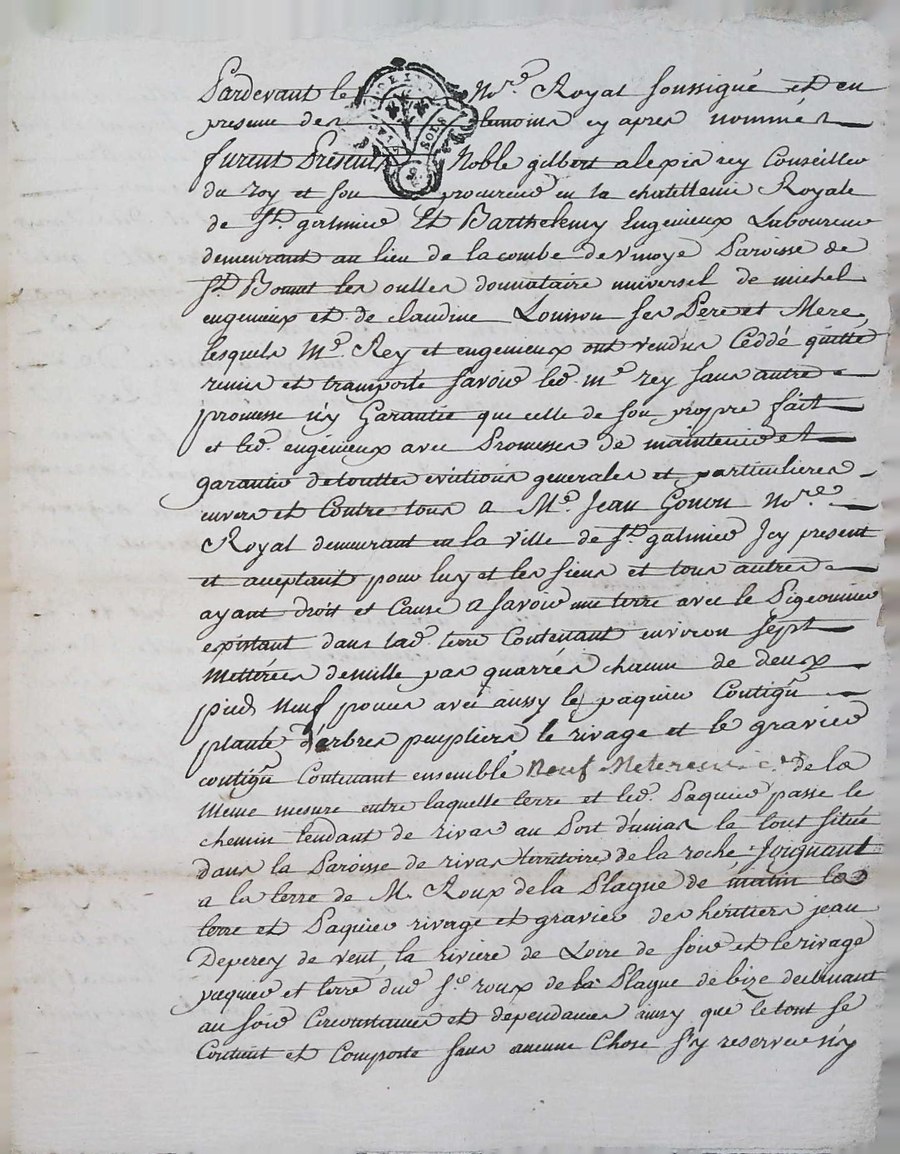 Pardevant le Nre. Royal soussigné et en
presence des temoins cy apres nommés
furent Presents Noble gilbert alexis rey Conseiller
du roy et son procureur en la chatellenie Royale
de St. galmier Et Barthelemy Engenieux Laboureur
demeurant au lieu de la combe de vinoye Paroisse de
St. Bonnet les oulles donnataire universel de michel
engenieux et de claudine Louison ses Pere et Mere,
lesquels Me. Rey et engenieux ont vendus Ceddé quitté
remis et transporté savoir led. me. rey sans autre
promesse n'y Garantie que celle de son propre fait
et led. engénieux avec Promesses de maintenir et
garantir de touttes evictions generales et particulieres
envers et Contre tous a Me. Jean Gonon Nore.
Royal demeurant en la ville de St. galmier Icy present
et acceptant pour luy et les siens et tous autres
ayant droit et Cause a savoir une terre avec le Pigeonnier
existant dans lad. terre Contenant environ sept
mettérées de mille pas quarrés chacun de deux
pieds neuf pouces avec aussy le paquier Contigu
planté d'arbres peupliers le rivage et le gravier
contigu Contenant ensemble neuf de la
meme mesure entre laquelle terre et led. Paquier passe le
chemin tendant de rivas au Port d'unias le tout situé
dans la Paroisse de rivas territoire de la roche Joignant
a la terre de M. Roux de la Plagne de matin les
terre et Paquier rivage et gravier des héritiers jean
Deperey de vent, la riviere de Loire de soir et le rivage
paquier et terre dud. Sr. roux de la Plagne de bize declinant
au soir Circonstances et dependances aussy que le tout se
Contient et Comporte sans aucune Chose s'y reserver n'y